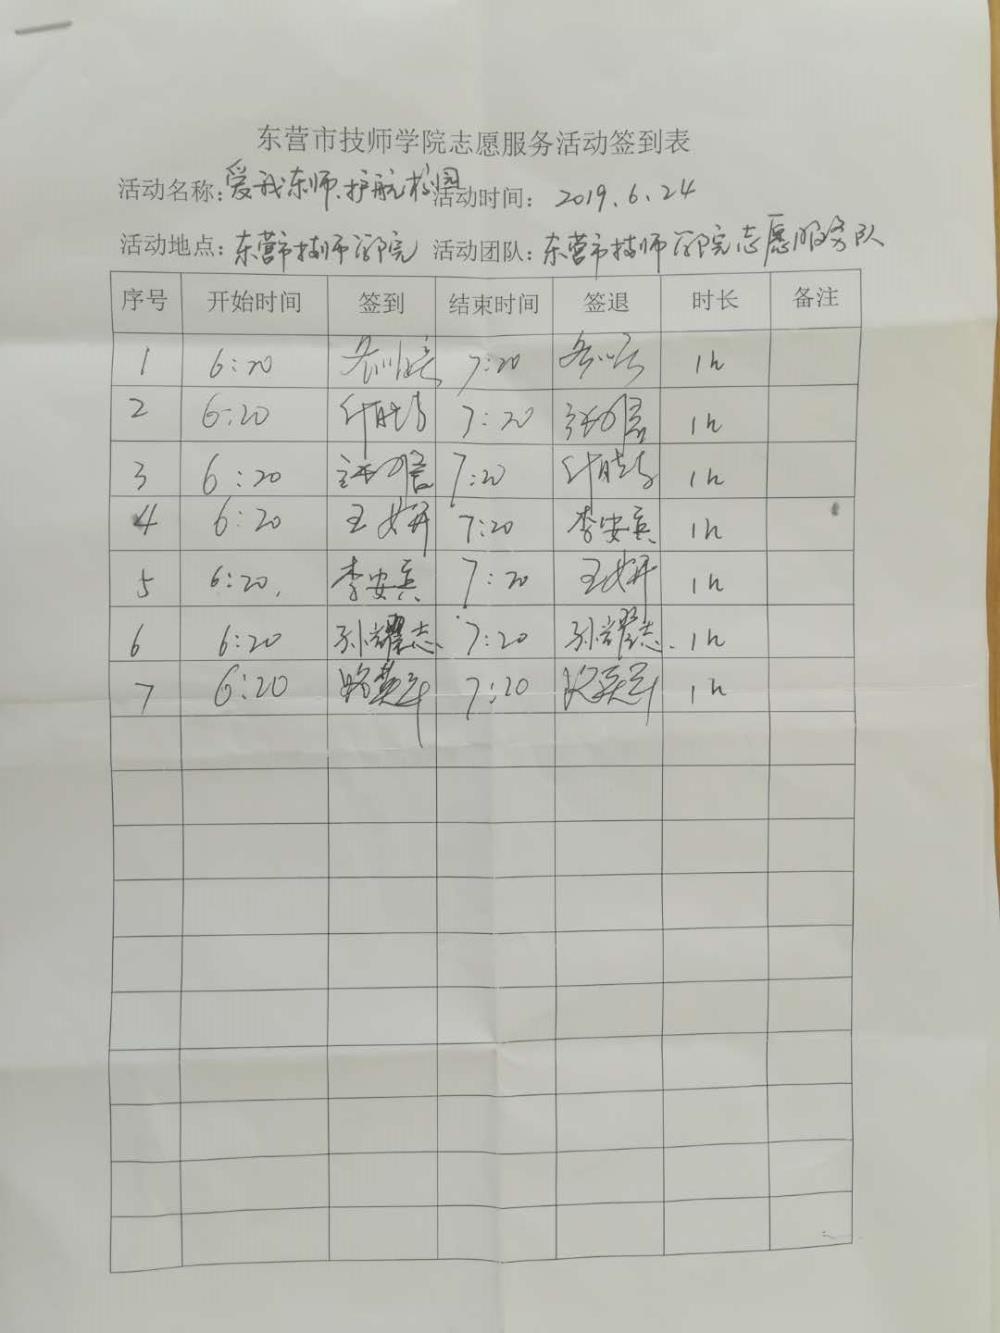 东营市技师学院志愿服务活动签到表
活动名称：爱我东师.护航校园 活动时间： 2019.6.24
活动地点：东营市技师学院 活动团队：东营市技师学院志愿服务队
序号 开始时间 签到 结束时间 签退 时长 备注
1 6:20 7:20 1h
2 6:20 7:20 1h
3 6:20 7:20 1h
4 6:20 王妍 7:20 李安兵 1h
5 6:20. 李安兵 7:20 王妍 1h
6 6:20 孙耀志. 7:20 孙耀志. 1h
7 6:20 7:20 1h